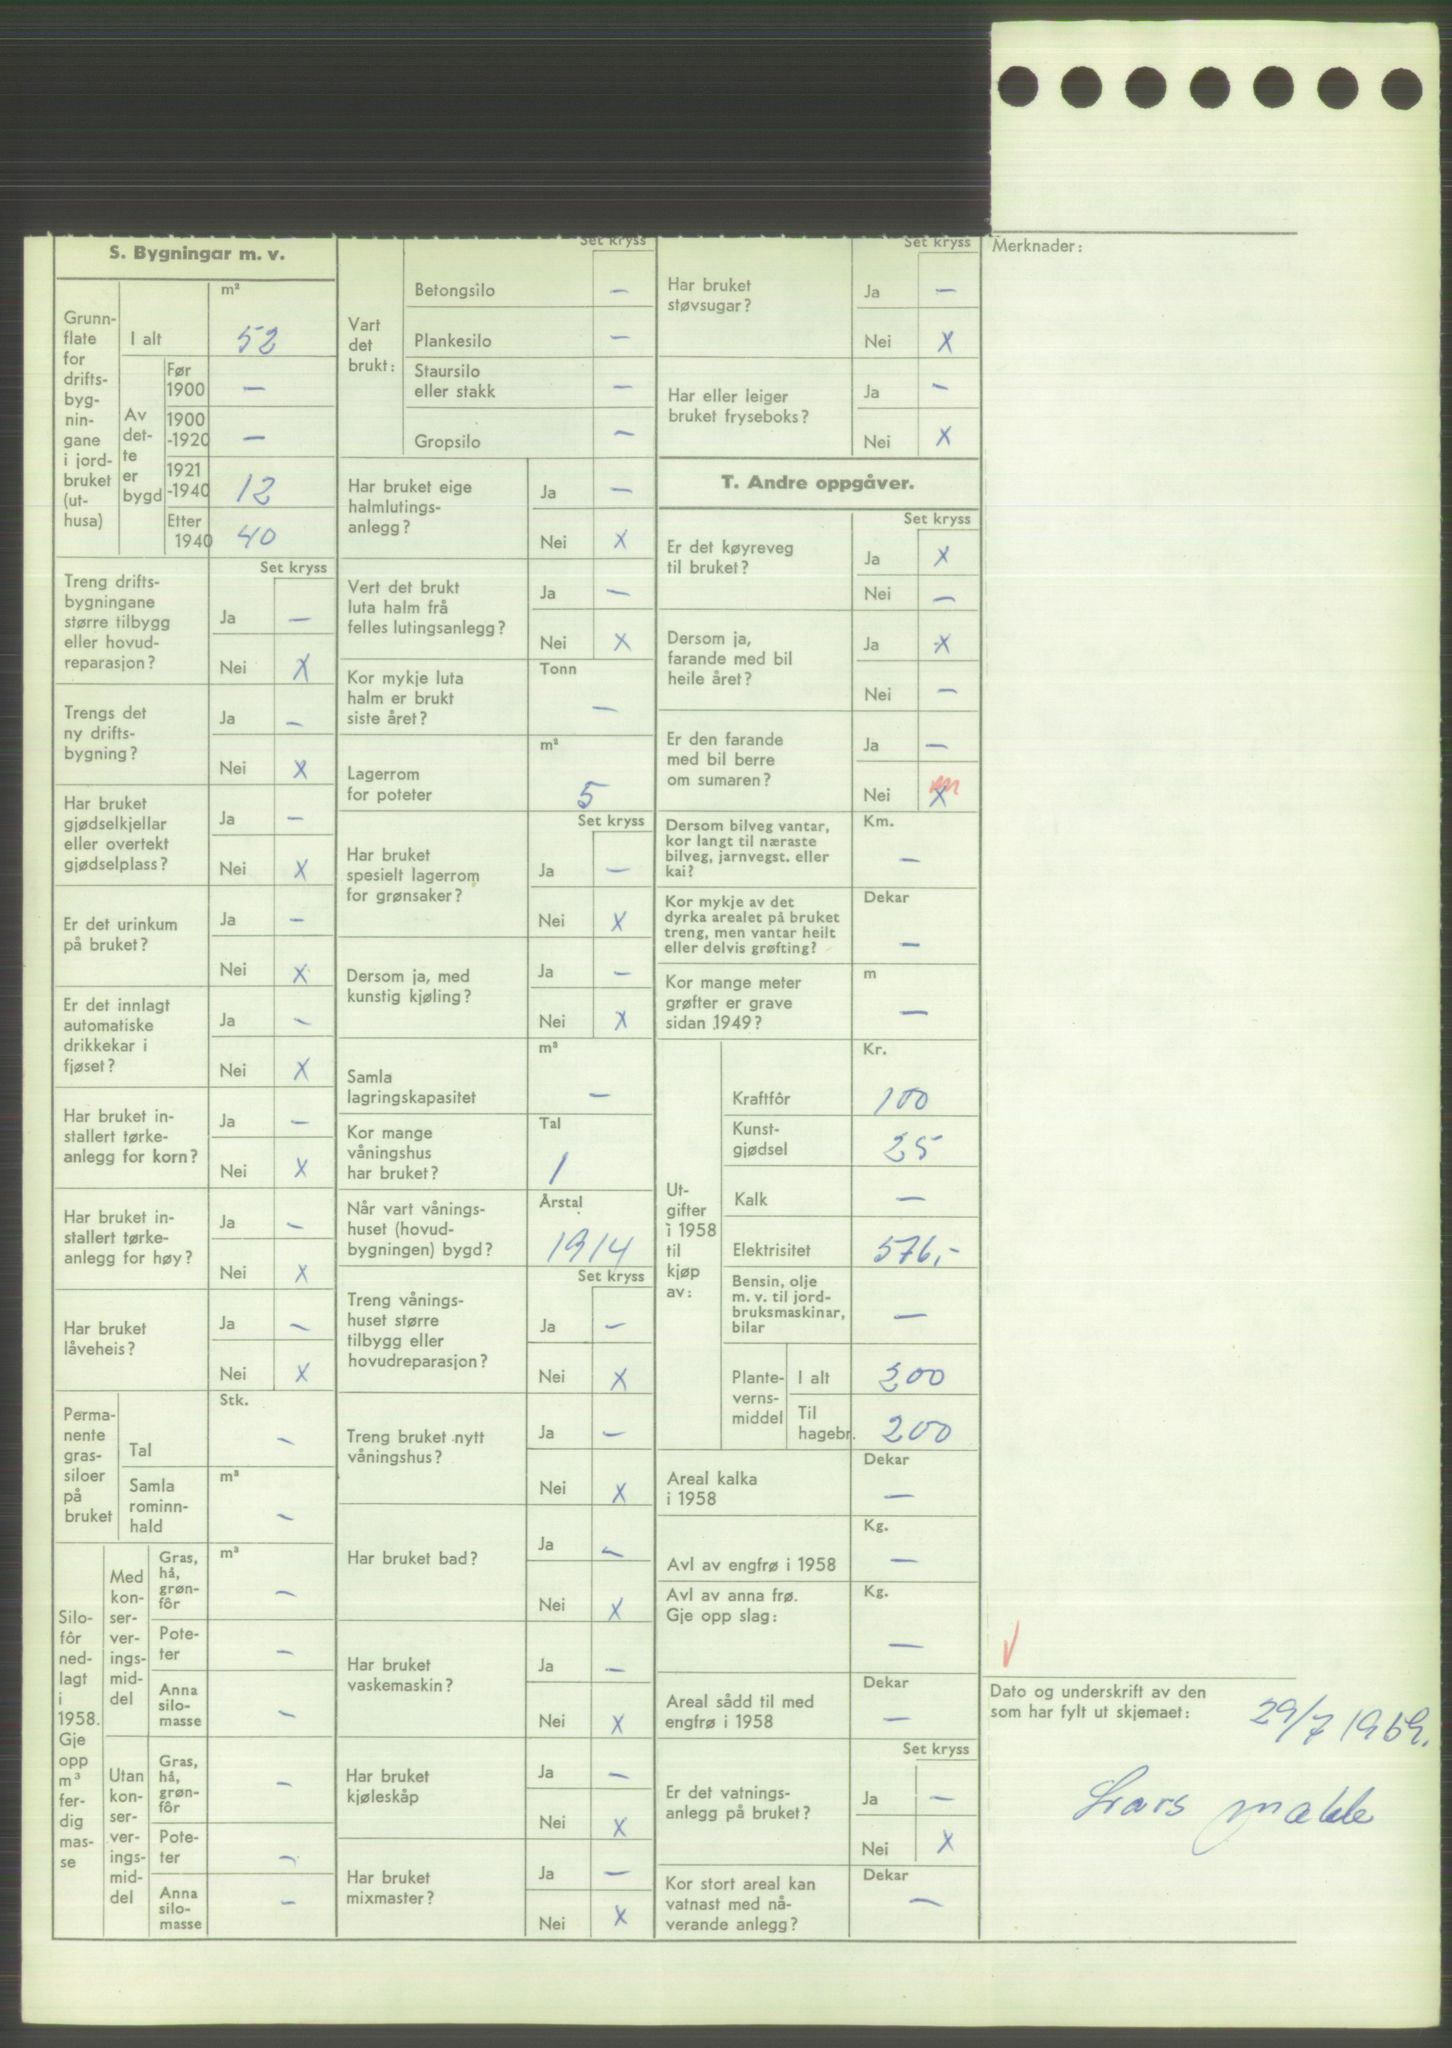 S. Bygningar m. v.
Grunn-
flate
for
drifts-
byg-
nin-
gane
i jord-
bruket
(ut-
husa)
m²
I alt 52
Av
det-
te
er
bygd
Før
1900 —
1900
-1920 —
1921
-1940 12
Etter
1940 40
Set kryss
Treng drifts-
bygningane
større tilbygg
eller hovud-
reparasjon?
Ja —
Nei X
Trengs det
ny drifts-
bygning?
Ja —
Nei X
Har bruket
gjødselkjellar
eller overtekt
gjødselplass?
Ja —
Nei X
Er det urinkum
på bruket?
Ja —
Nei X
Er det innlagt
automatiske
drikkekar i
fjøset?
Ja —
Nei X
Har bruket in-
stallert tørke-
anlegg for korn?
Ja —
Nei X
Har bruket in-
stallert tørke-
anlegg for høy?
Ja —
Nei X
Har bruket
låveheis?
Ja —
Nei X
Perma-
nente
gras-
siloer
på
bruket
Stk.
Tal —
m³
Samla
rominn-
hald —
Silo-
fôr
ned-
lagt
i
1958.
Gje
opp
m³
fer-
dig
mas-
se
Med
kon-
ser-
ver-
ings-
mid-
del
m³
Gras,
hå,
grøn-
fôr —
Pote-
ter —
Anna
silo-
masse —
Utan
kon-
ser-
ver-
ings-
mid-
del
Gras,
hå,
grøn-
fôr —
Pote-
ter —
Anna
silo-
masse —
Set kryss
Vart
det
brukt:
Betongsilo —
Plankesilo —
Staursilo
eller stakk —
Gropsilo —
Har bruket eige
halmlutings-
anlegg?
Ja —
Nei X
Vert det brukt
luta halm frå
felles lutingsanlegg?
Ja —
Nei X
Kor mykje luta
halm er brukt
siste året?
Tonn
—
Lagerrom
for poteter
m²
5
Set kryss
Har bruket
spesielt lagerrom
for grønsaker?
Ja —
Nei X
Dersom ja, med
kunstig kjøling?
Ja —
Nei X
Samla
lagringskapasitet
m³
—
Kor mange
våningshus
har bruket?
Tal
1
Når vart vånings-
huset (hovud-
bygningen) bygd?
Årstal
1914
Set kryss
Treng vånings-
huset større
tilbygg eller
hovudreparasjon?
Ja —
Nei X
Treng bruket nytt
våningshus?
Ja —
Nei X
Har bruket bad?
Ja —
Nei X
Har bruket
vaskemaskin?
Ja —
Nei X
Har bruket
kjøleskåp
Ja —
Nei X
Har bruket
mixmaster?
Ja —
Nei X
Set kryss
Har bruket
støvsugar?
Ja —
Nei X
Har eller leiger
bruket fryseboks?
Ja —
Nei X
T. Andre oppgåver.
Set kryss
Er det køyreveg
til bruket?
Ja X
Nei —
Dersom ja,
farande med bil
heile året?
Ja X
Nei —
Er den farande
med bil berre
om sumaren?
Ja —
Nei X
Dersom bilveg vantar,
kor langt til næraste
bilveg, jarnvegst. eller
kai?
Km.
—
Kor mykje av det
dyrka arealet på bruket
treng, men vantar heilt
eller delvis grøfting?
Dekar
—
Kor mange meter
grøfter er grave
sidan 1949?
m
—
Ut-
gifter
i 1958
til
kjøp
av:
Kr.
Kraftfôr 100
Kunst-
gjødsel 25
Kalk —
Elektrisitet 576,-
Bensin, olje
m. v. til jord-
bruksmaskinar,
bilar —
Plante-
verns-
middel
I alt 200
Til
hagebr. 200
Areal kalka
i 1958
Dekar
—
Avl av engfrø i 1958
Kg.
—
Avl av anna frø.
Gje opp slag:
Kg.
—
Areal sådd til med
engfrø i 1958
Dekar
—
Set kryss
Er det vatnings-
anlegg på bruket?
Ja —
Nei X
Kor stort areal kan
vatnast med nå-
verande anlegg?
Dekar
—
Merknader:
Dato og underskrift av den
som har fylt ut skjemaet:
29/7 1959.
Lars